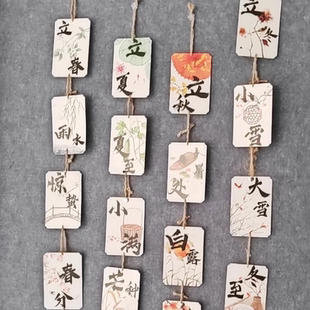 立春
雨水
惊蛰
春分
立夏
夏至
小满
芒种
立秋
处
白露
立冬
小雪
大雪
冬至